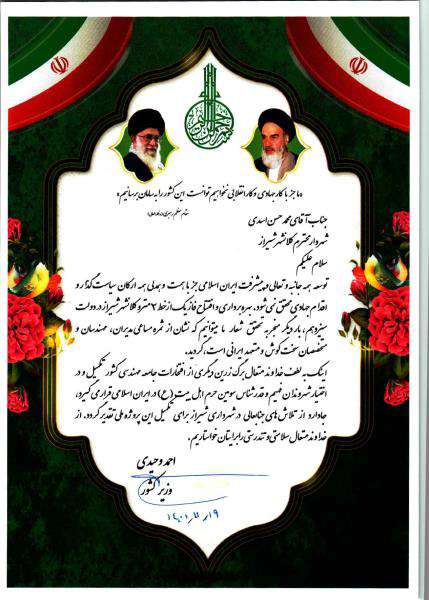 «ما جز با کار جهادی و کار انقلابی نخواهیم توانست این کشور را به سامان برسانیم»
مقام معظم رهبری (مدظله العالی)
جناب آقای محمد حسن اسدی
شهردار محترم کلانشهر شیراز
سلام علیکم
توسعه همه جانبه و تعالی و پیشرفت ایران اسلامی جز با همت و همدلی همه ارکان سیاست گذار و
اقدام جهادی محقق نمی شود. بهره برداری و افتتاح فاز یک از خط ۲ مترو کلانشهر شیراز در دولت
سیزدهم، بار دیگر منجر به تحقق شعار ما میتوانیم که نشان از ثمره مساعی مدیران، مهندسان و
متخصصان سخت کوش و متعهد ایرانی است، گردید.
اینک به لطف خداوند متعال برگ زرین دیگری از افتخارات جامعه مهندسی کشور تکمیل و در
اختیار شهروندان فهیم و قدرشناس سومین حرم اهل بیت (ع) در ایران اسلامی قرار می گیرد،
جا دارد از تلاش های جنابعالی در شهرداری شیراز برای تکمیل این پروژه ملی تقدیر گردد. از
خداوند متعال سلامتی و تندرستی را برایتان خواستاریم.
احمد وحیدی
وزیر کشور